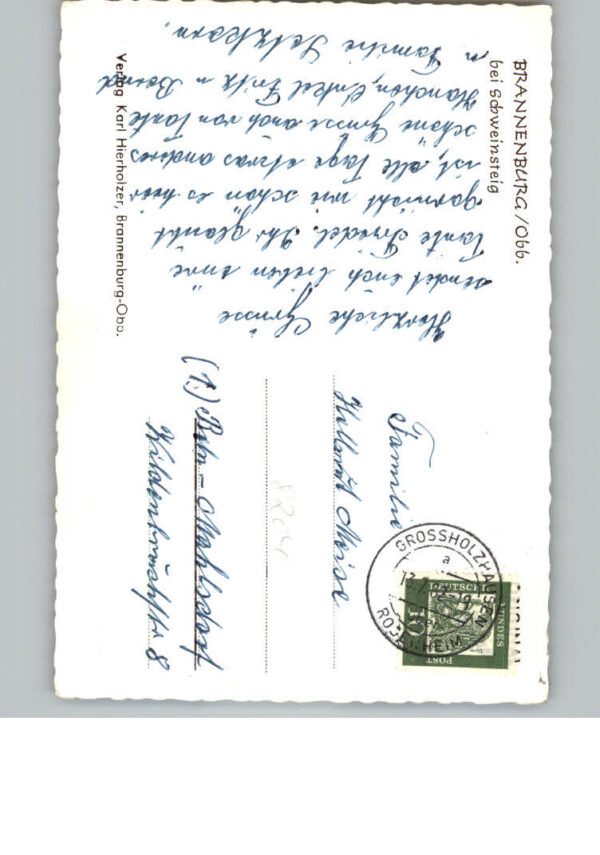 BRANNENBURG / Obb.
bei Schweinsteig
Herzliche Grüsse
sendet euch lieben eure
Tante Friedel. Ihr glaubt
garnicht wie schön es hier
ist, alle Tage etwas anderes
schöne Grüsse auch von Tante
Hanchen, Onkel Fritz u Bernd
u Familie
Verlag Karl Hierholzer, Brannenburg-Obb.
Familie
(1) Bln-Mahlsdorf
8204
GROSSHOLZHAUSEN
a
ROSENHEIM
DEUTSCHE
BUNDES
POST
10